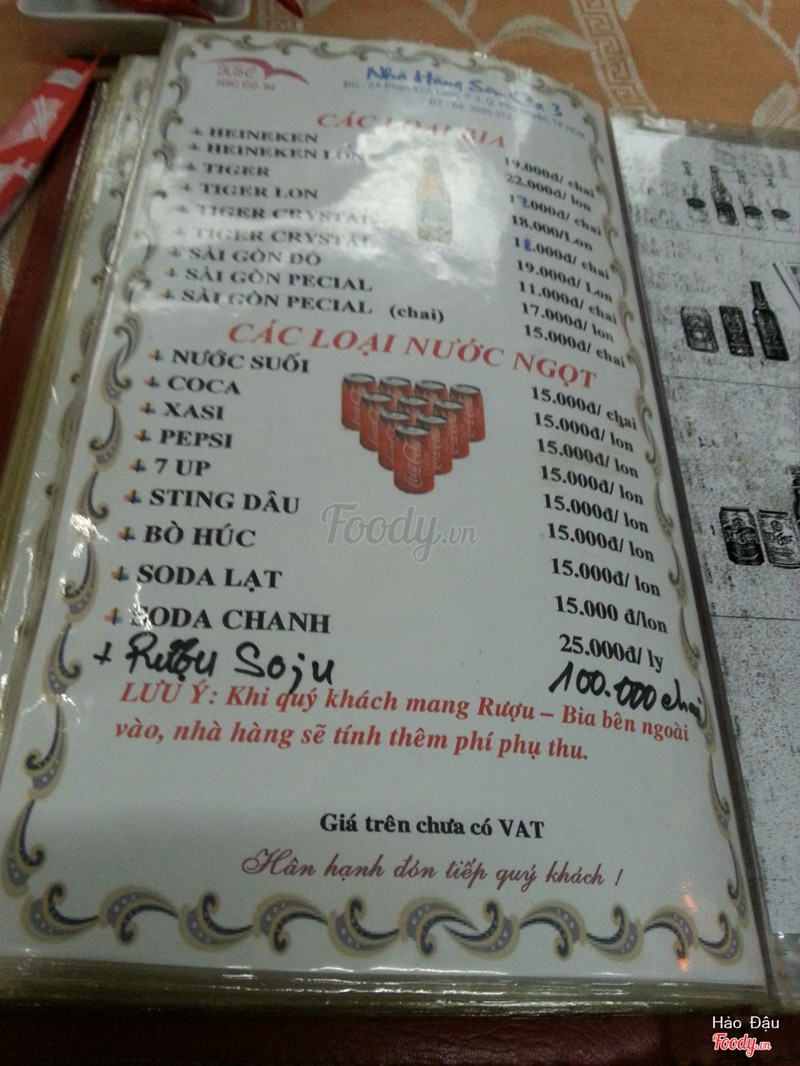 HSC
Nhà Hàng
3
CÁC LOẠI BIA
+ HEINEKEN 19.000đ/ chai
+ HEINEKEN LON 22.000đ/ lon
+ TIGER 17.000đ/ chai
+ TIGER LON 18.000/Lon
+ TIGER CRYSTAL 18.000đ/ chai
+ TIGER CRYSTAL 19.000đ/ Lon
+ SÀI GÒN ĐỎ 11.000đ/ chai
+ SÀI GÒN PECIAL 17.000đ/ lon
+ SÀI GÒN PECIAL (chai) 15.000đ/ chai
CÁC LOẠI NƯỚC NGỌT
+ NƯỚC SUỐI 15.000đ/ chai
+ COCA 15.000đ/ lon
+ XASI 15.000đ/ lon
+ PEPSI 15.000đ/ lon
+ 7 UP 15.000đ/ lon
+ STING DÂU 15.000đ/ lon
+ BÒ HÚC 15.000đ/ lon
+ SODA LẠT 15.000 đ/lon
+ SODA CHANH 25.000đ/ ly
+ Rượu Soju 100.000 chai
LƯU Ý: Khi quý khách mang Rượu – Bia bên ngoài
vào, nhà hàng sẽ tính thêm phí phụ thu.
Giá trên chưa có VAT
Hân hạnh đón tiếp quý khách !
Foody.vn
Hảo Đậu
Foody.vn